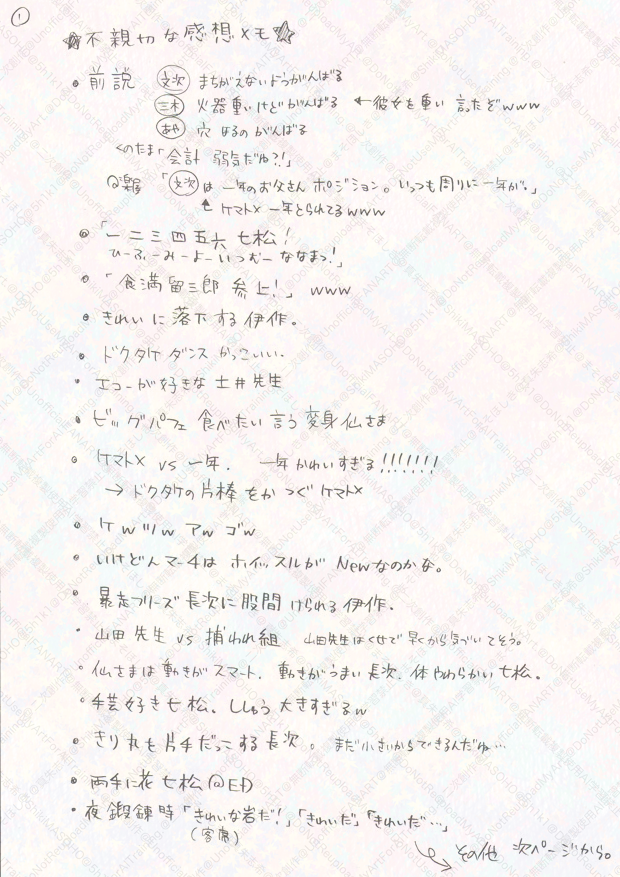 ①
☆不親切な感想メモ☆
・前説 文次 まちがえないようがんばる
三木 火器重いけどがんばる ←彼女を重い言ったぞwww
あや 穴ほるのがんばる
くのたま「会計 弱気だね?!」
@楽屋 「文次は一年のお父さんポジション。いつも周りに一年が。」
↑ケマトメ 一年とられてるwww
・「一二三四五六七松!
ひーふーみーよーいつむーななまっ!」
・「食満留三郎 参上!」 www
・きれいに落下する伊作。
・ドクタケダンス かっこいい。
・エコーが好きな土井先生
・ビッグパフェ 食べたい言う変身仙さま
・ケマトメ vs 一年. 一年かわいすぎる!!!!!!!
→ドクタケの片棒をかつぐケマトメ
・ケwツwアwゴw
・いけどんマーチは ホイッスルが Newなのかな。
・暴走フリーズ長次に股間けられる伊作.
・山田先生 vs 捕われ組 山田先生はくせで早くから気づいてそう。
・仙さまは動きがスマート. 動きがうまい長次. 体やわらかい七松。
・手芸好き七松。ししゅう大きすぎるw
・きり丸を片手だっこする長次。まだ小さいからできるんだね…
・両手に花七松@ED
・夜鍛錬時「きれいな岩だ!」「きれいだ」「きれいだ…」
(客席)
その他 次ページから。